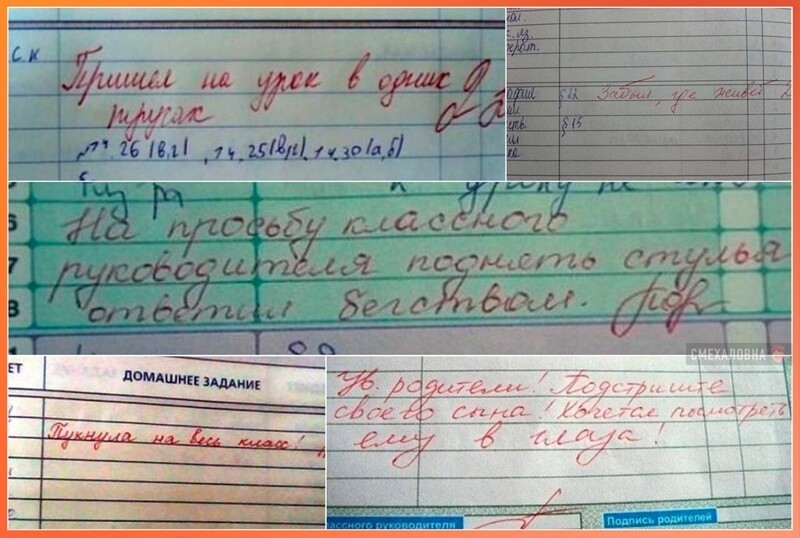 с.к
Пришел на урок в одних
трусах
14.26 (в,г), 14.25(в,г), 14.30 (а,б)
§ 22 Забыл, где живёт 2
§ 15
На просьбу классного
6
7
руководителя поднять стулья
8
ответил бегством.
СМЕХАЛОВНА
ДОМАШНЕЕ ЗАДАНИЕ
Пукнула на весь класс!
Ув. родители! Подстригите
своего сына! Хочется посмотреть
ему в глаза!
классного руководителя
Подпись родителей